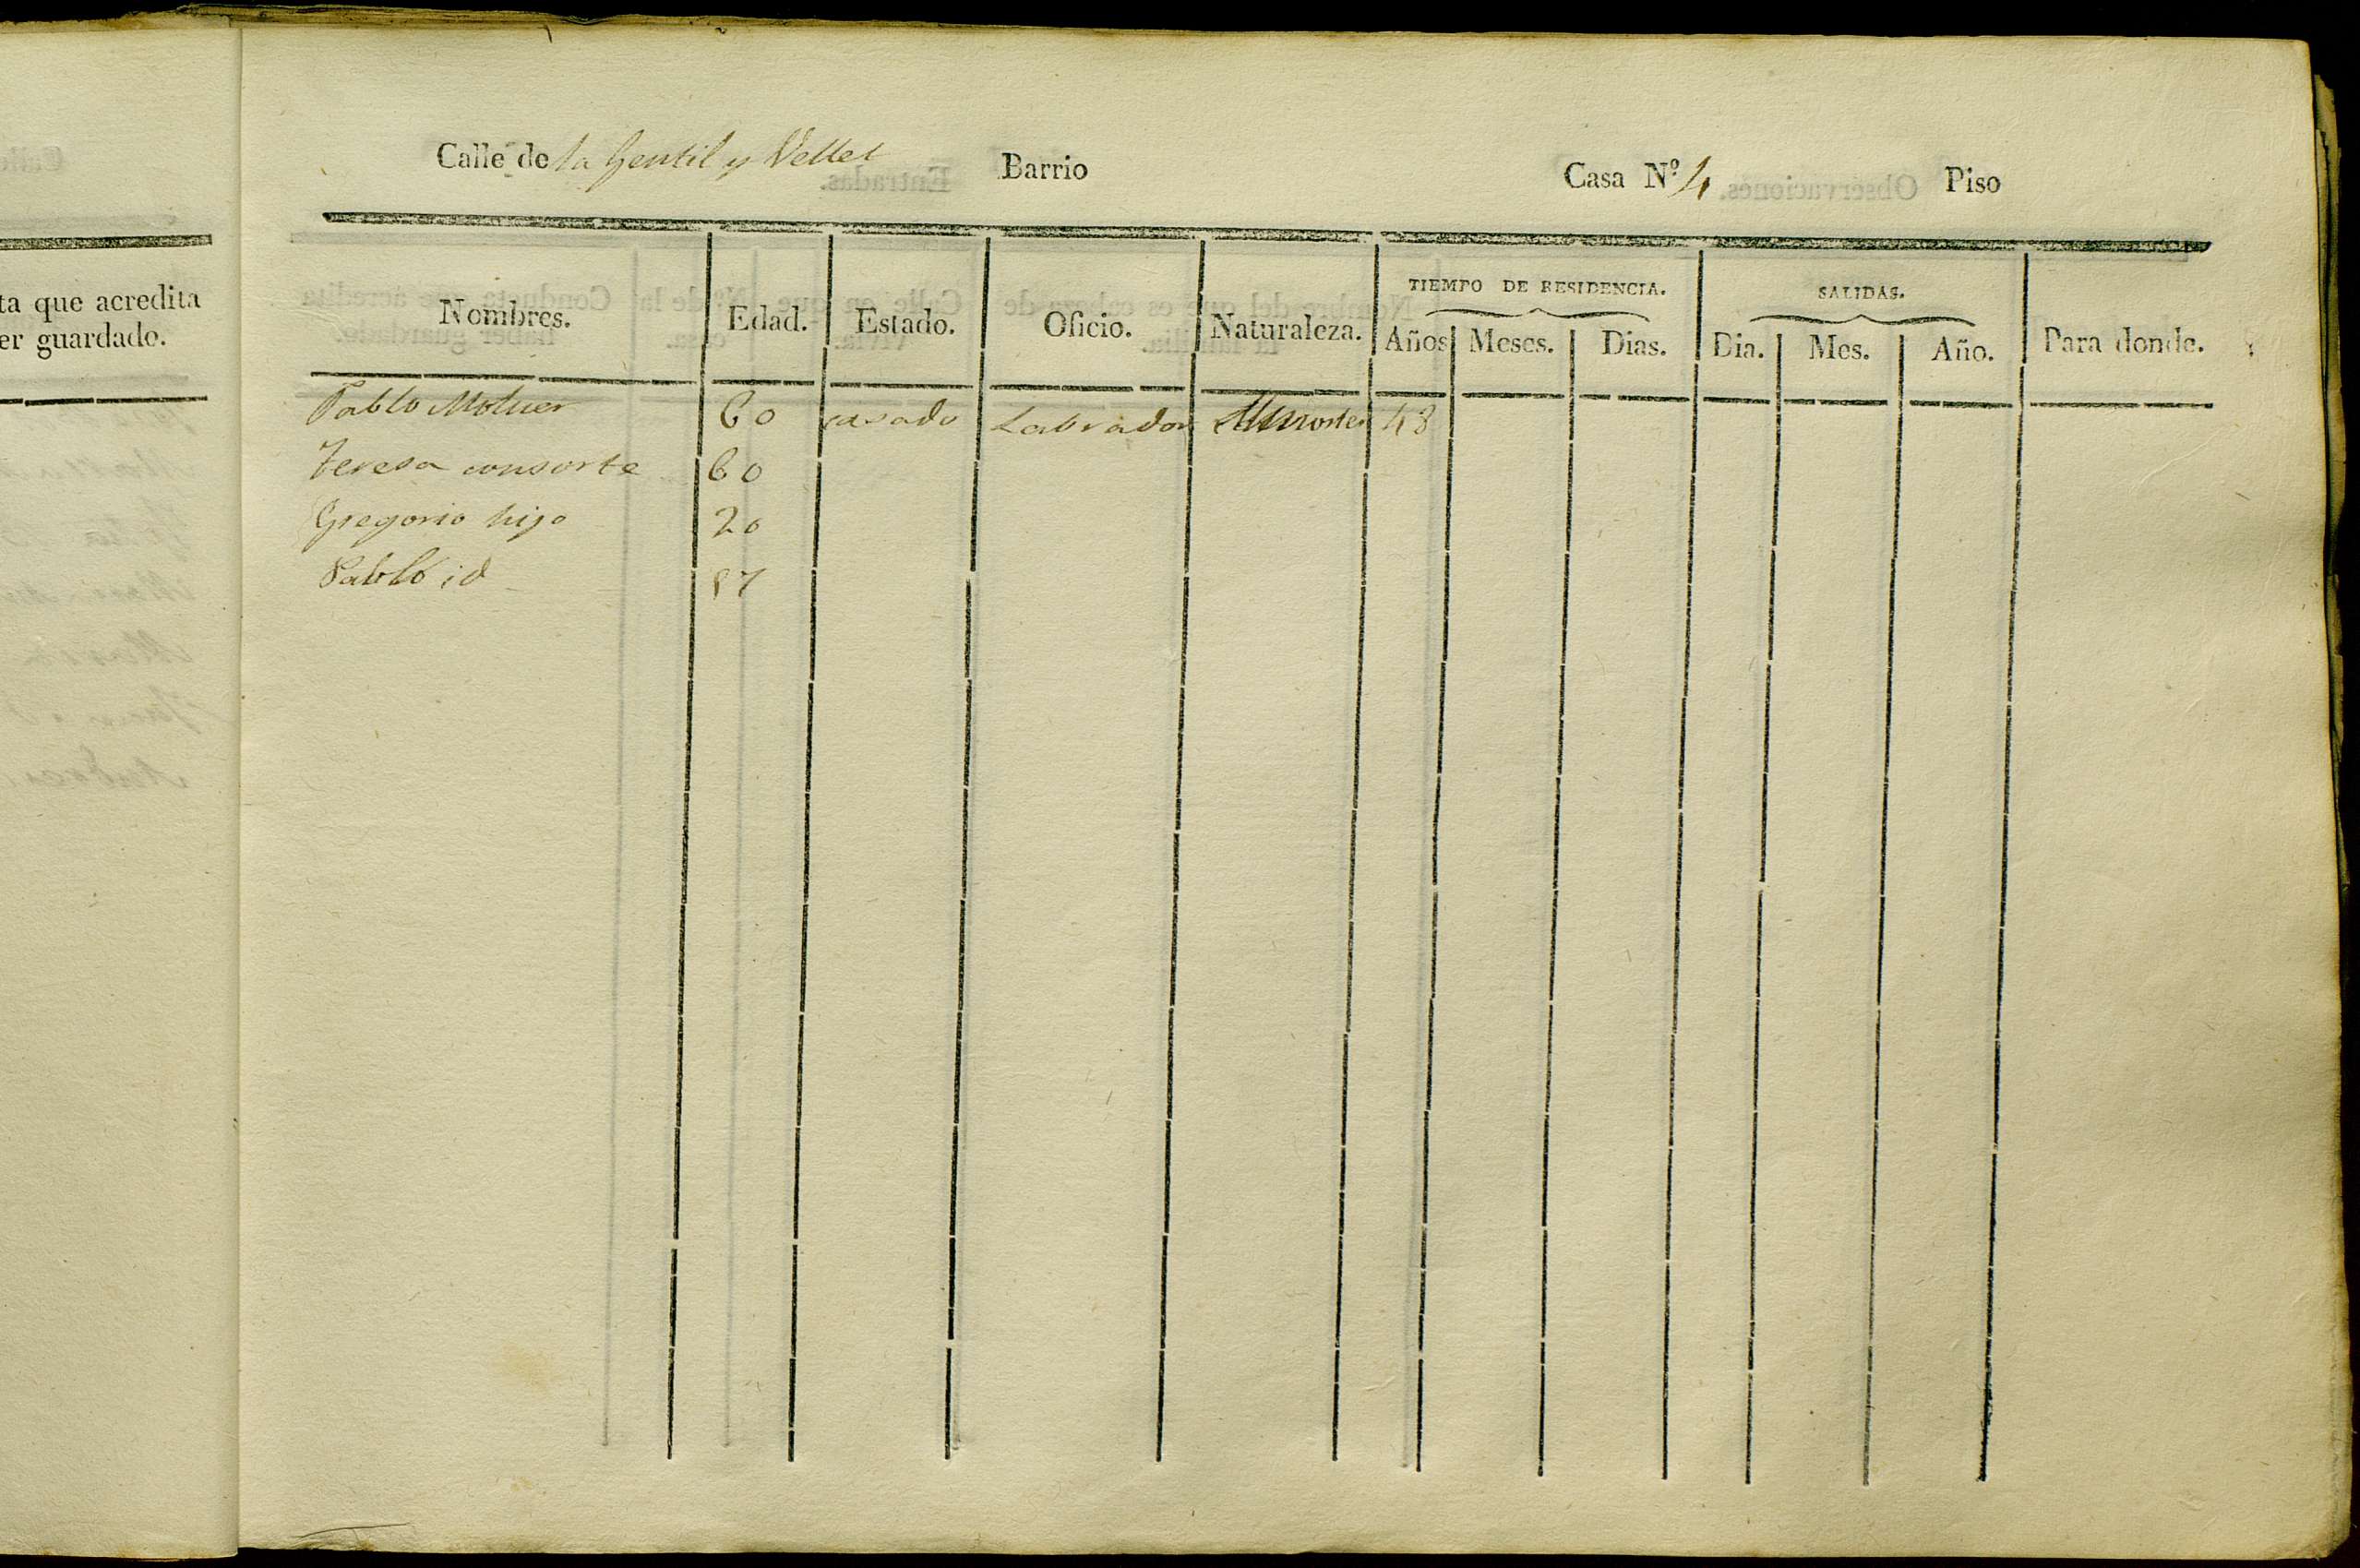 Calle de la Gentil y Vellet Barrio Casa Nº 4 Piso
ta que acredita
er guardado.
TIEMPO DE RESIDENCIA. SALIDAS.
Nombres. Edad. Estado. Oficio. Naturaleza. Años Meses. Dias. Dia. Mes. Año. Para donde.
Pablo Moluer 60 casado Labrador 48
Teresa consorte 60
Gregorio hijo 20
Pablo id 17